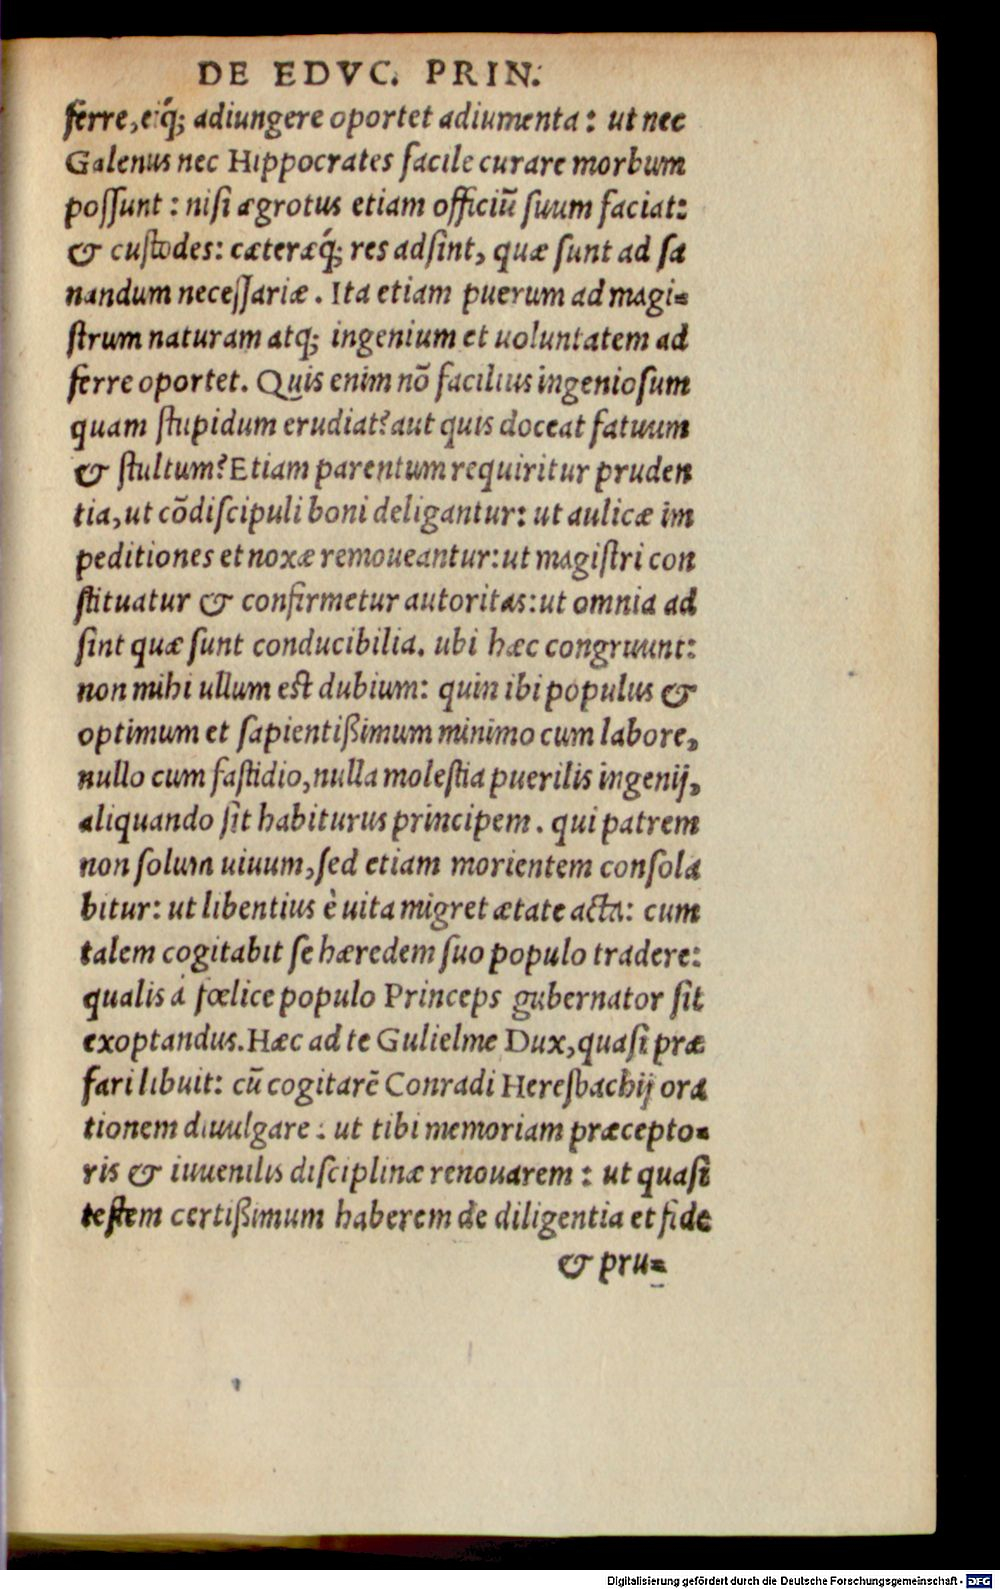 DE EDVC. PRIN.
ferre, eíq́; adiungere oportet adiumenta: ut nec
Galenus nec Hippocrates facile curare morbum
poſſunt: niſi ægrotus etiam officiũ ſuum faciat:
& cuſtodes: cæteræq́; res adſint, quæ ſunt ad ſa
nandum neceſſariæ. Ita etiam puerum ad magi=
ſtrum naturam atq; ingenium et uoluntatem ad
ferre oportet. Quis enim nõ facilius ingenioſum
quam ſtupidum erudiat? aut quis doceat fatuum
& ſtultum? Etiam parentum requiritur pruden
tia, ut cõdiſcipuli boni deligantur: ut aulicæ im
peditiones et noxæ remoueantur: ut magiſtri con
ſtituatur & confirmetur autoritas: ut omnia ad
ſint quæ ſunt conducibilia. ubi hæc congruunt:
non mihi ullum eſt dubium: quin ibi populus &
optimum et ſapientißimum minimo cum labore,
nullo cum faſtidio, nulla moleſtia puerilis ingenij,
aliquando ſit habiturus principem. qui patrem
non ſolum uiuum, ſed etiam morientem conſola
bitur: ut libentius è uita migret ætate acta: cum
talem cogitabit ſe hæredem ſuo populo tradere:
qualis à fœlice populo Princeps gubernator ſit
exoptandus. Hæc ad te Gulielme Dux, quaſi præ
fari libuit: cũ cogitarẽ Conradi Heresbachij ora
tionem diuulgare: ut tibi memoriam præcepto=
ris & iuuenilis diſciplinæ renouarem: ut quaſi
teſtem certißimum haberem de diligentia et fide
& pru=
Digitalisierung gefördert durch die Deutsche Forschungsgemeinschaft - DFG